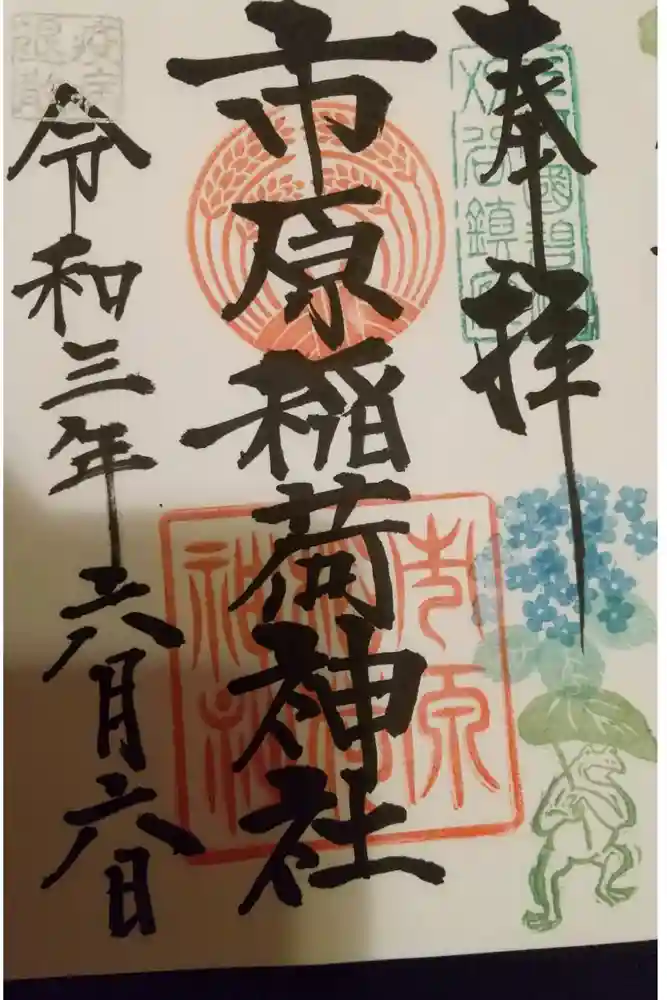 奉拝
市原稲荷神社
令和三年六月六日
疫病退散